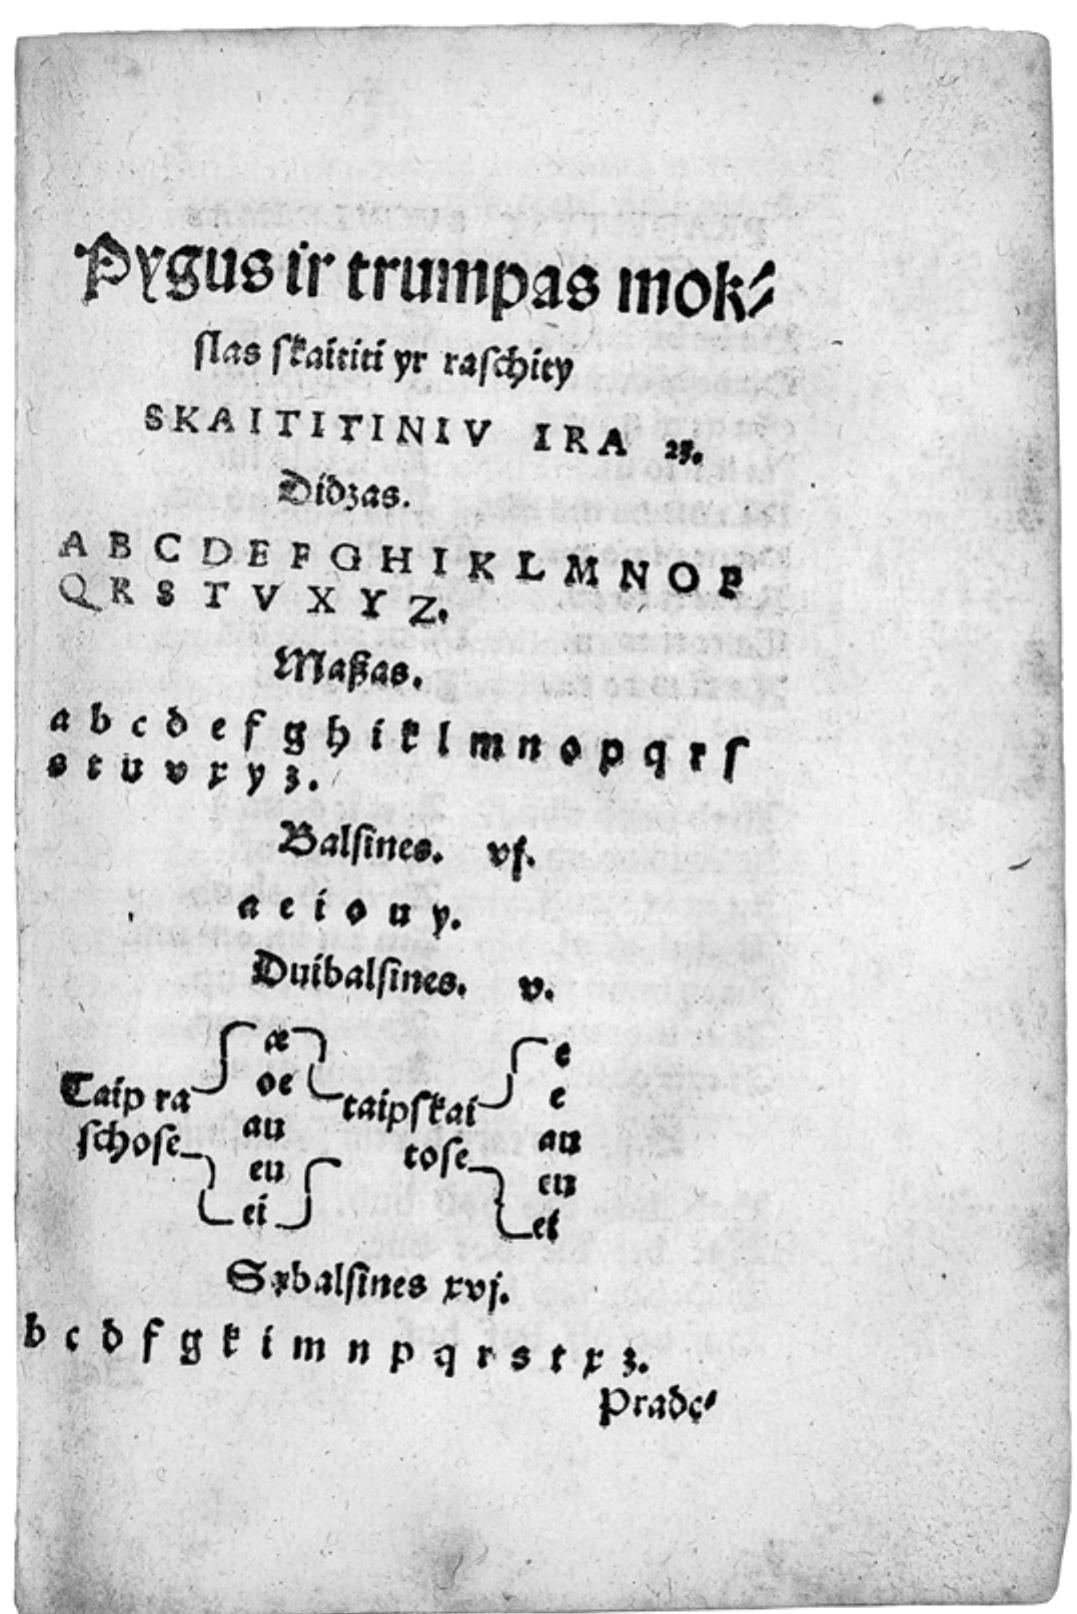 Pygus ir trumpas mok⸗
ſlas ſkaititi yr raſchity
SKAITITINIV IRA 23.
Didzas.
A B C D E F G H I K L M N O P
Q R S T V X Y Z.
Maßas.
a b c d e f g h i k l m n o p q r ſ
s t u v x y z.
Balſines. vj.
a e i o u y.
Duibalſines. v.
æ e
oe e
Taip ra taipſkai
au au
ſchoſe toſe
eu eu
ei ei
Sąbalſines xvj.
b c d f g k i m n p q r s t x z.
Pradę⸗